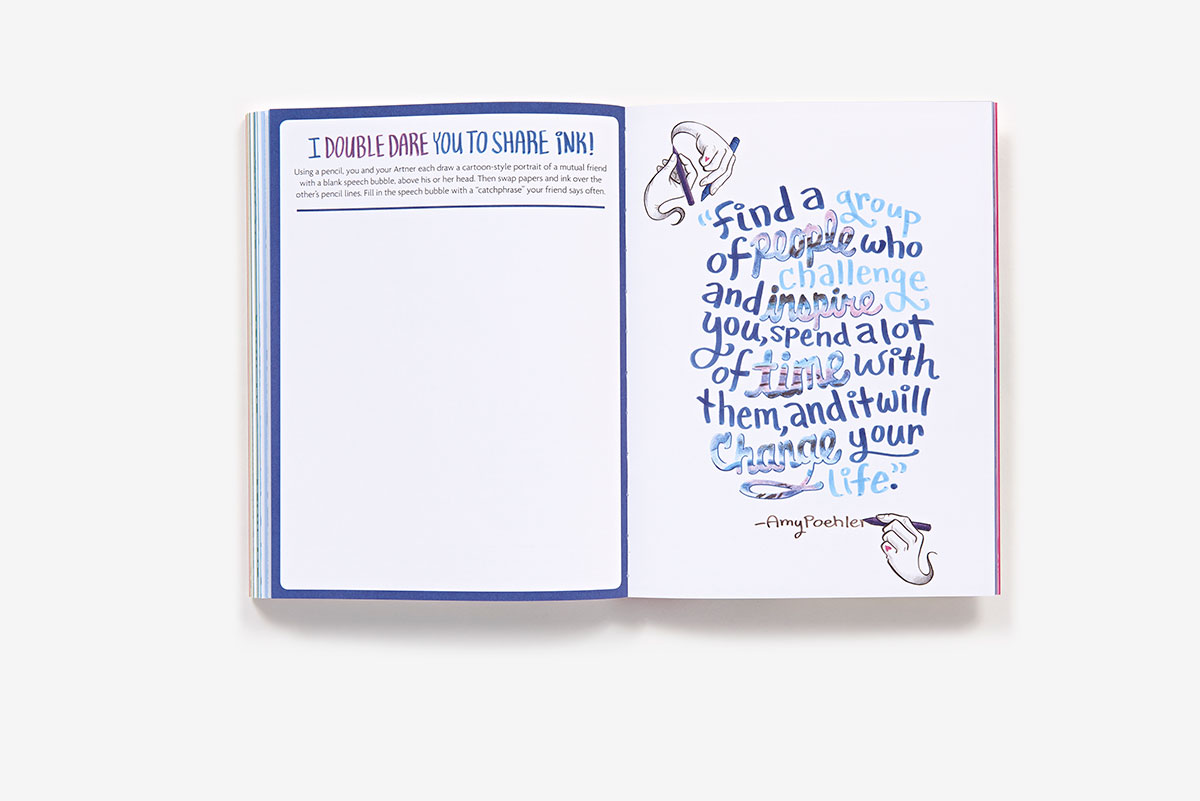 I DOUBLE DARE YOU TO SHARE iNK!
Using a pencil, you and your Artner each draw a cartoon-style portrait of a mutual friend
with a blank speech bubble, above his or her head. Then swap papers and ink over the
other's pencil lines. Fill in the speech bubble with a “catchphrase” your friend says often.
“find a group
of people who
challenge
and inspire
you, spend a lot
of time with
them, and it will
Change your
life.”
–Amy Poehler